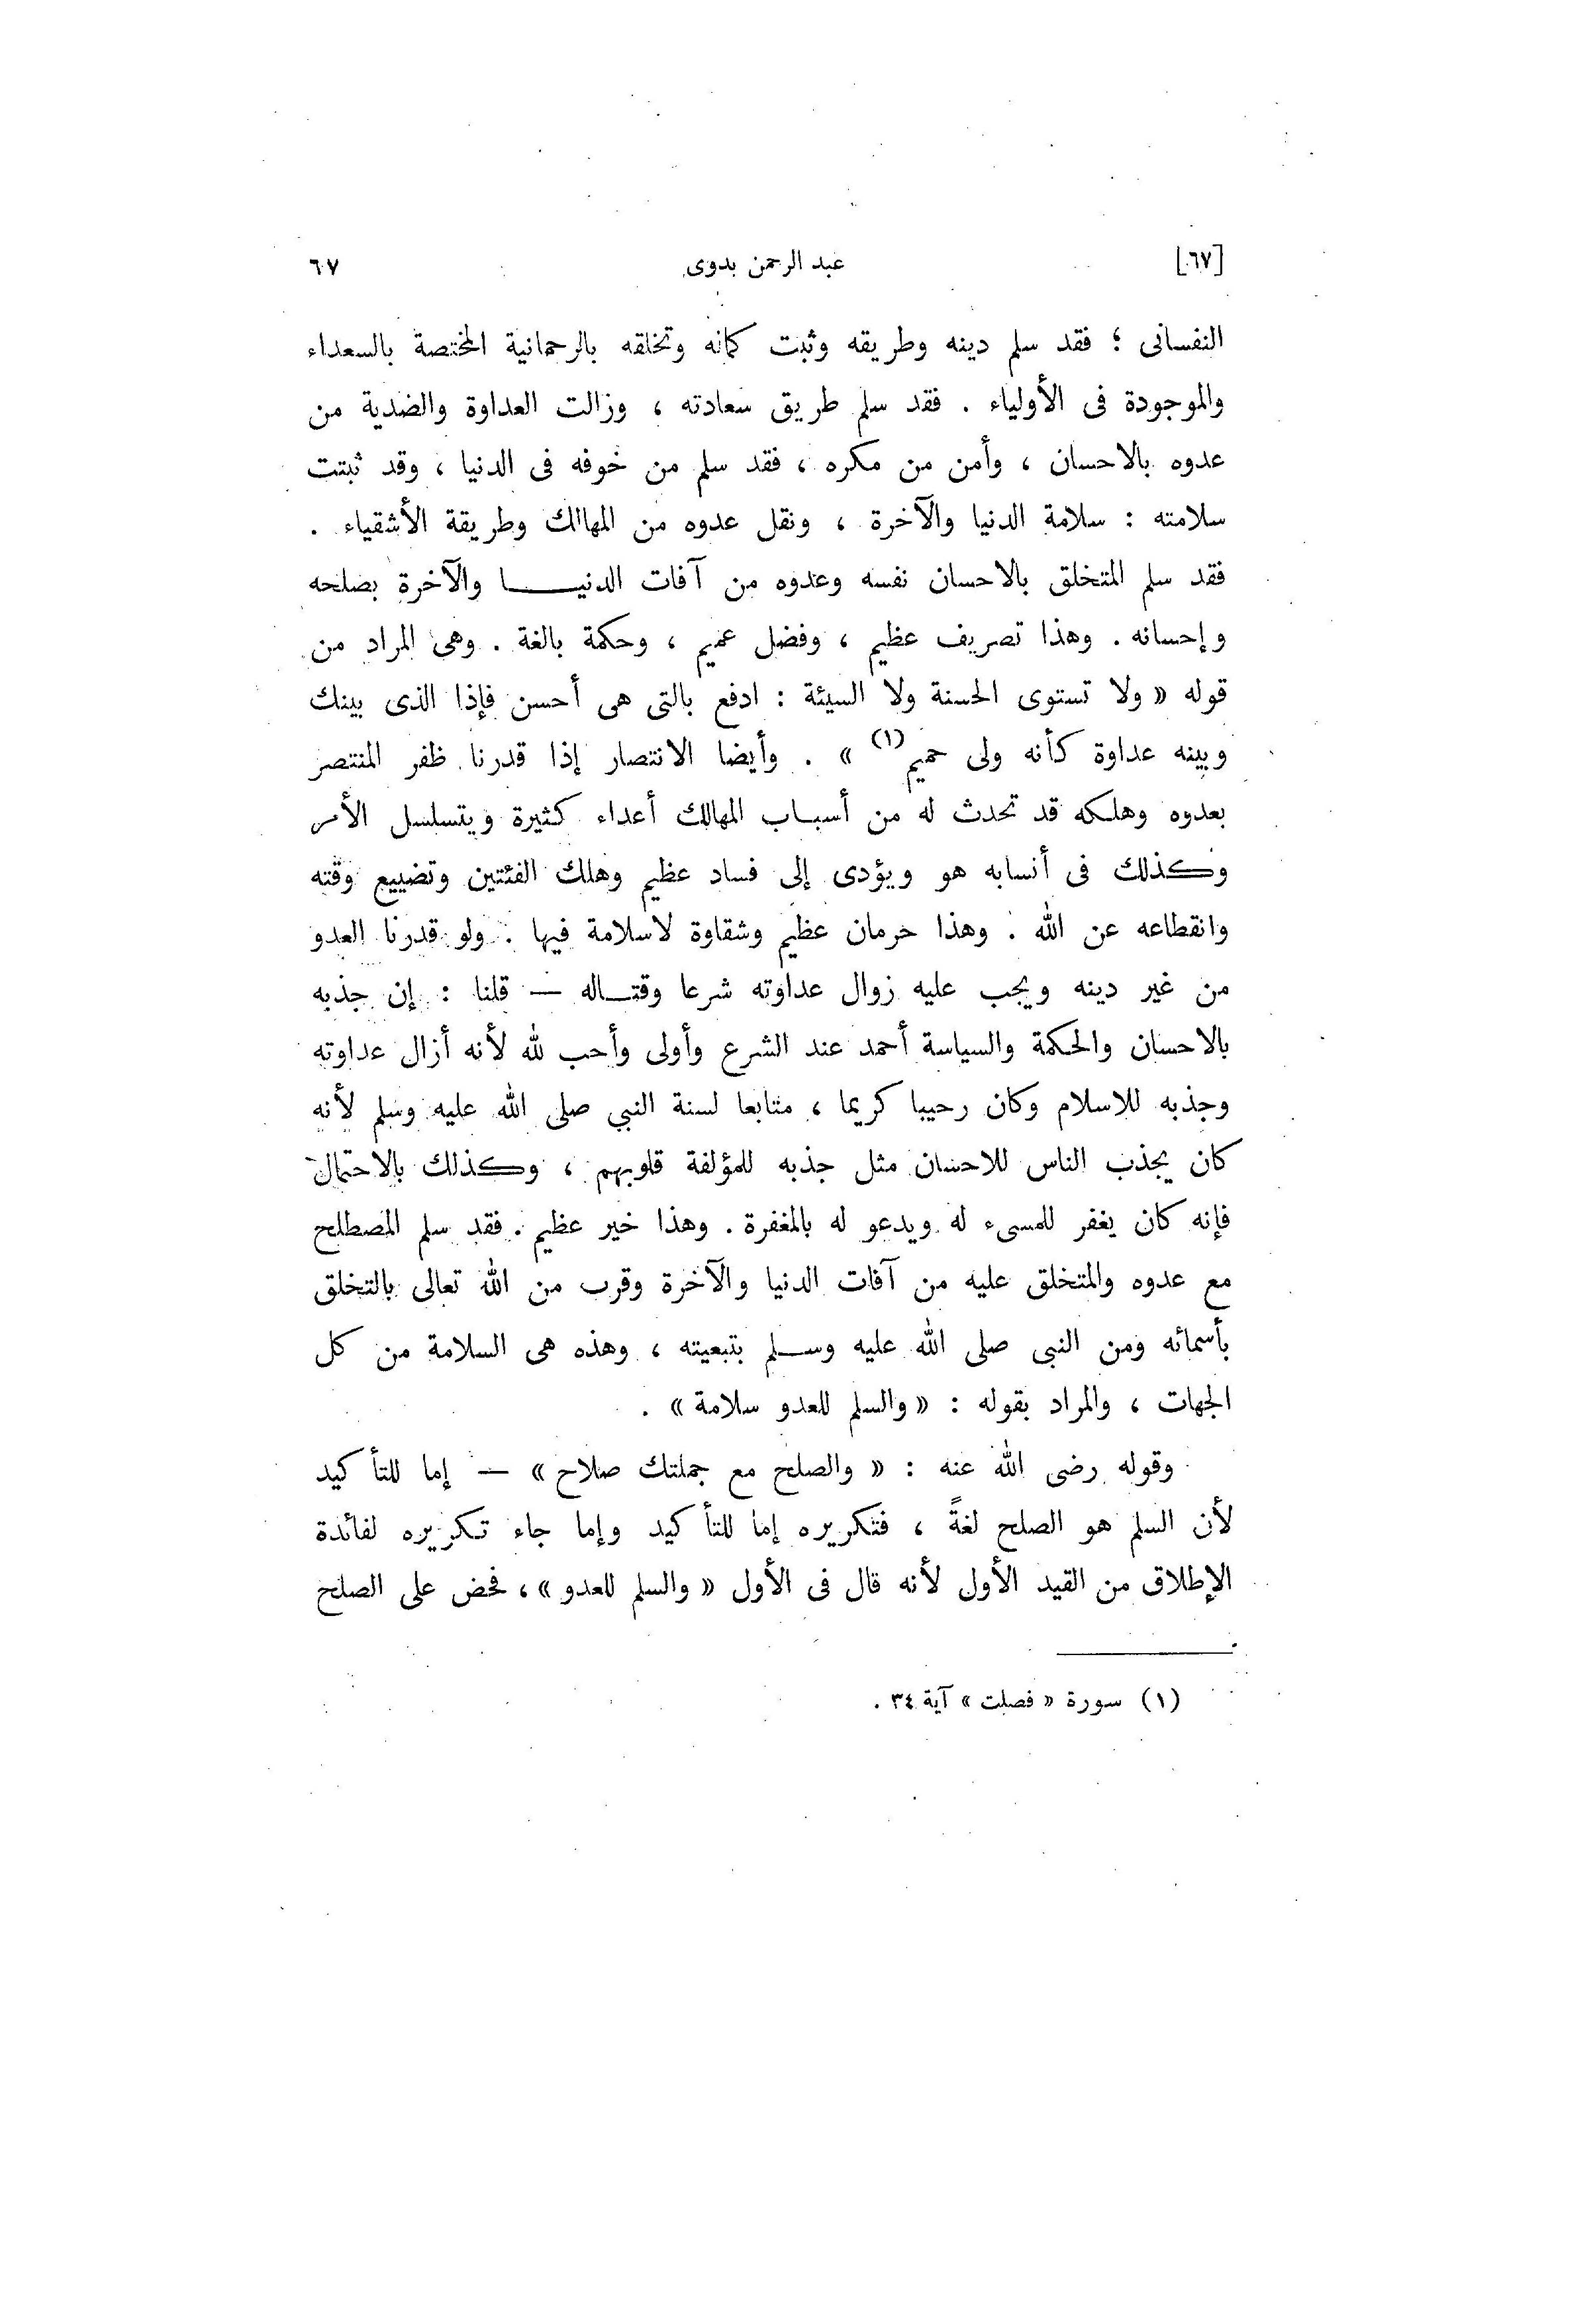 [٦٧] عبد الرحمن بدوى ٦٧
النفسانى ؛ فقد سلم دينه وطريقه وثبت كمانه وتخلقه بالرحمانية المختصة بالسعداء
والموجودة فى الأولياء . فقد سلم طريق سعادته ، وزالت العداوة والضدية من
عدوه بالاحسان ، وأمن من مكره ، فقد سلم من خوفه فى الدنيا ، وقد ثبتت
سلامته : سلامة الدنيا والآخرة ، ونقل عدوه من المهالك وطريقة الأشقياء .
فقد سلم المتخلق بالاحسان نفسه وعدوه من آفات الدنيـــا والآخرة بصلحه
وإحسانه . وهذا تصريف عظيم ، وفضل عميم ، وحكمة بالغة . وهى المراد من
قوله « ولا تستوى الحسنة ولا السيئة : ادفع بالتى هى أحسن فإذا الذى بينك
وبينه عداوة كأنه ولى حميم (١) » . وأيضا الانتصار إذا قدرنا ظفر المنتصر
بعدوه وهلكه قد تحدث له من أسباب المهالك أعداء كثيرة ويتسلسل الأمر
وكذلك فى أنسابه هو ويؤدى إلى فساد عظيم وهلك الفئتين وتضييع وقته
وانقطاعه عن الله . وهذا حرمان عظيم وشقاوة لاسلامة فيها . ولو قدرنا العدو
من غير دينه ويجب عليه زوال عداوته شرعا وقتـاله — قلنا : إن جذبه
بالاحسان والحكمة والسياسة أحمد عند الشرع وأولى وأحب لله لأنه أزال عداوته
وجذبه للاسلام وكان رحيبا كريما ، متابعا لسنة النبي صلى الله عليه وسلم لأنه
كان يجذب الناس للاحسان مثل جذبه للمؤلفة قلوبهم ، وكذلك بالاحتمال
فإنه كان يغفر للمسىء له ويدعو له بالمغفرة . وهذا خير عظيم . فقد سلم المصطلح
مع عدوه والمتخلق عليه من آفات الدنيا والآخرة وقرب من الله تعالى بالتخلق
بأسمائه ومن النبى صلى الله عليه وســلم بتبعيته ، وهذه هى السلامة من كل
الجهات ، والمراد بقوله : « والسلم للعدو سلامة » .
وقوله رضى الله عنه : « والصلح مع جملتك صلاح » — إما للتأكيد
لأن السلم هو الصلح لغةً ، فتكريره إما للتأكيد وإما جاء تكريره لفائدة
الإطلاق من القيد الأول لأنه قال فى الأول « والسلم للعدو » ، فحض على الصلح
(١) سورة « فصلت » آية ٣٤ .